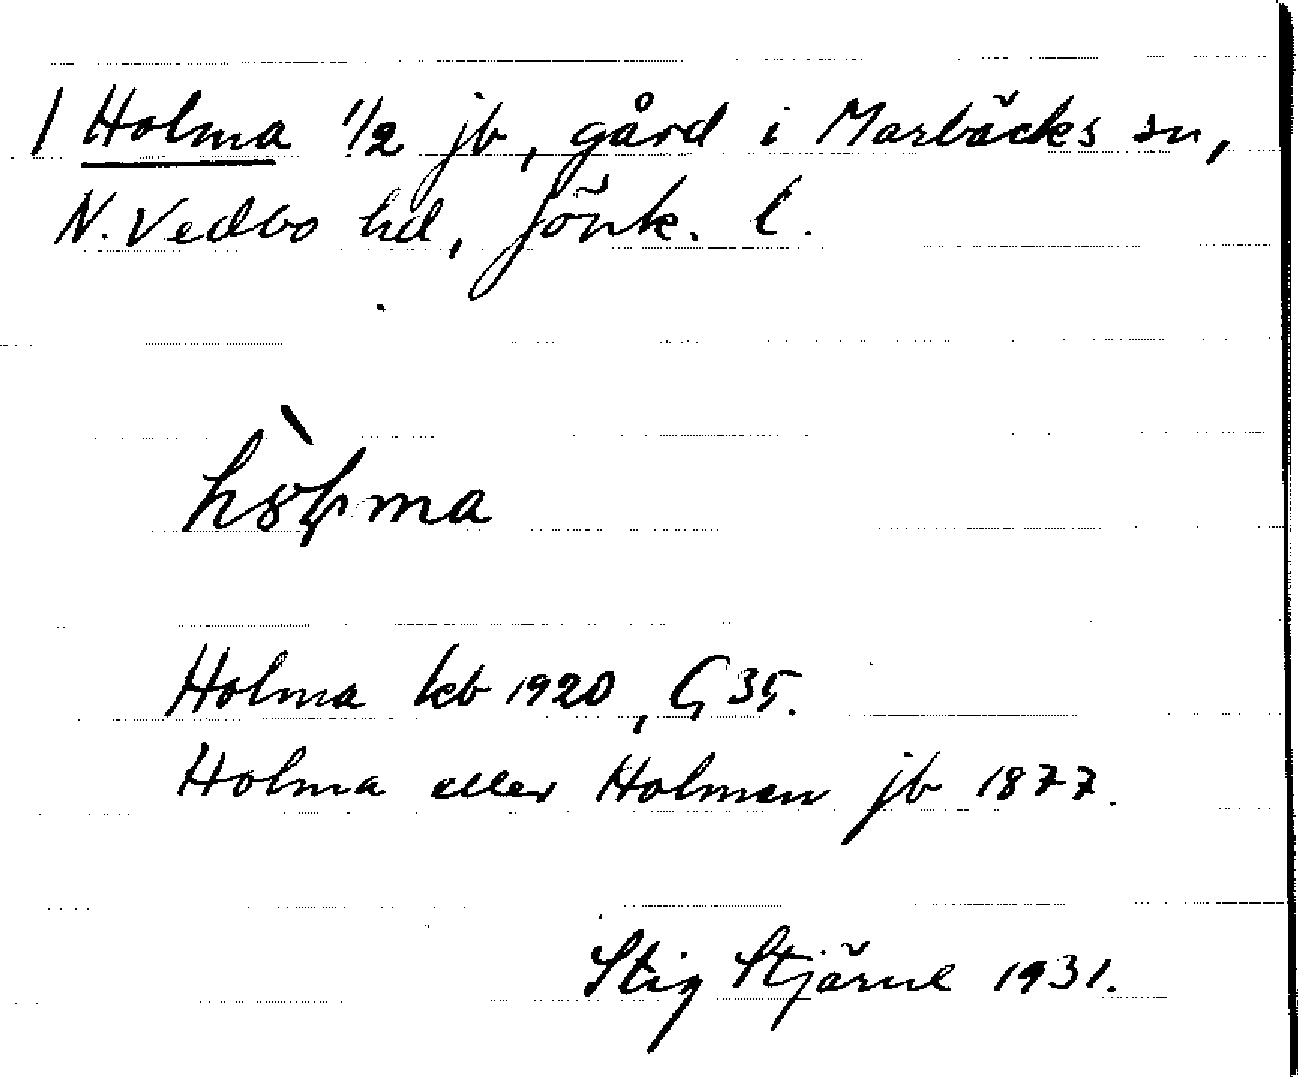 1 Holma 1/2 jb, gård i Marbäcks sn,
N. Vedbo hd, Jönk. l.
Holma kb 1920, G 35.
Holma eller Holmen jb 1877.
Stig Stjärne 1931.